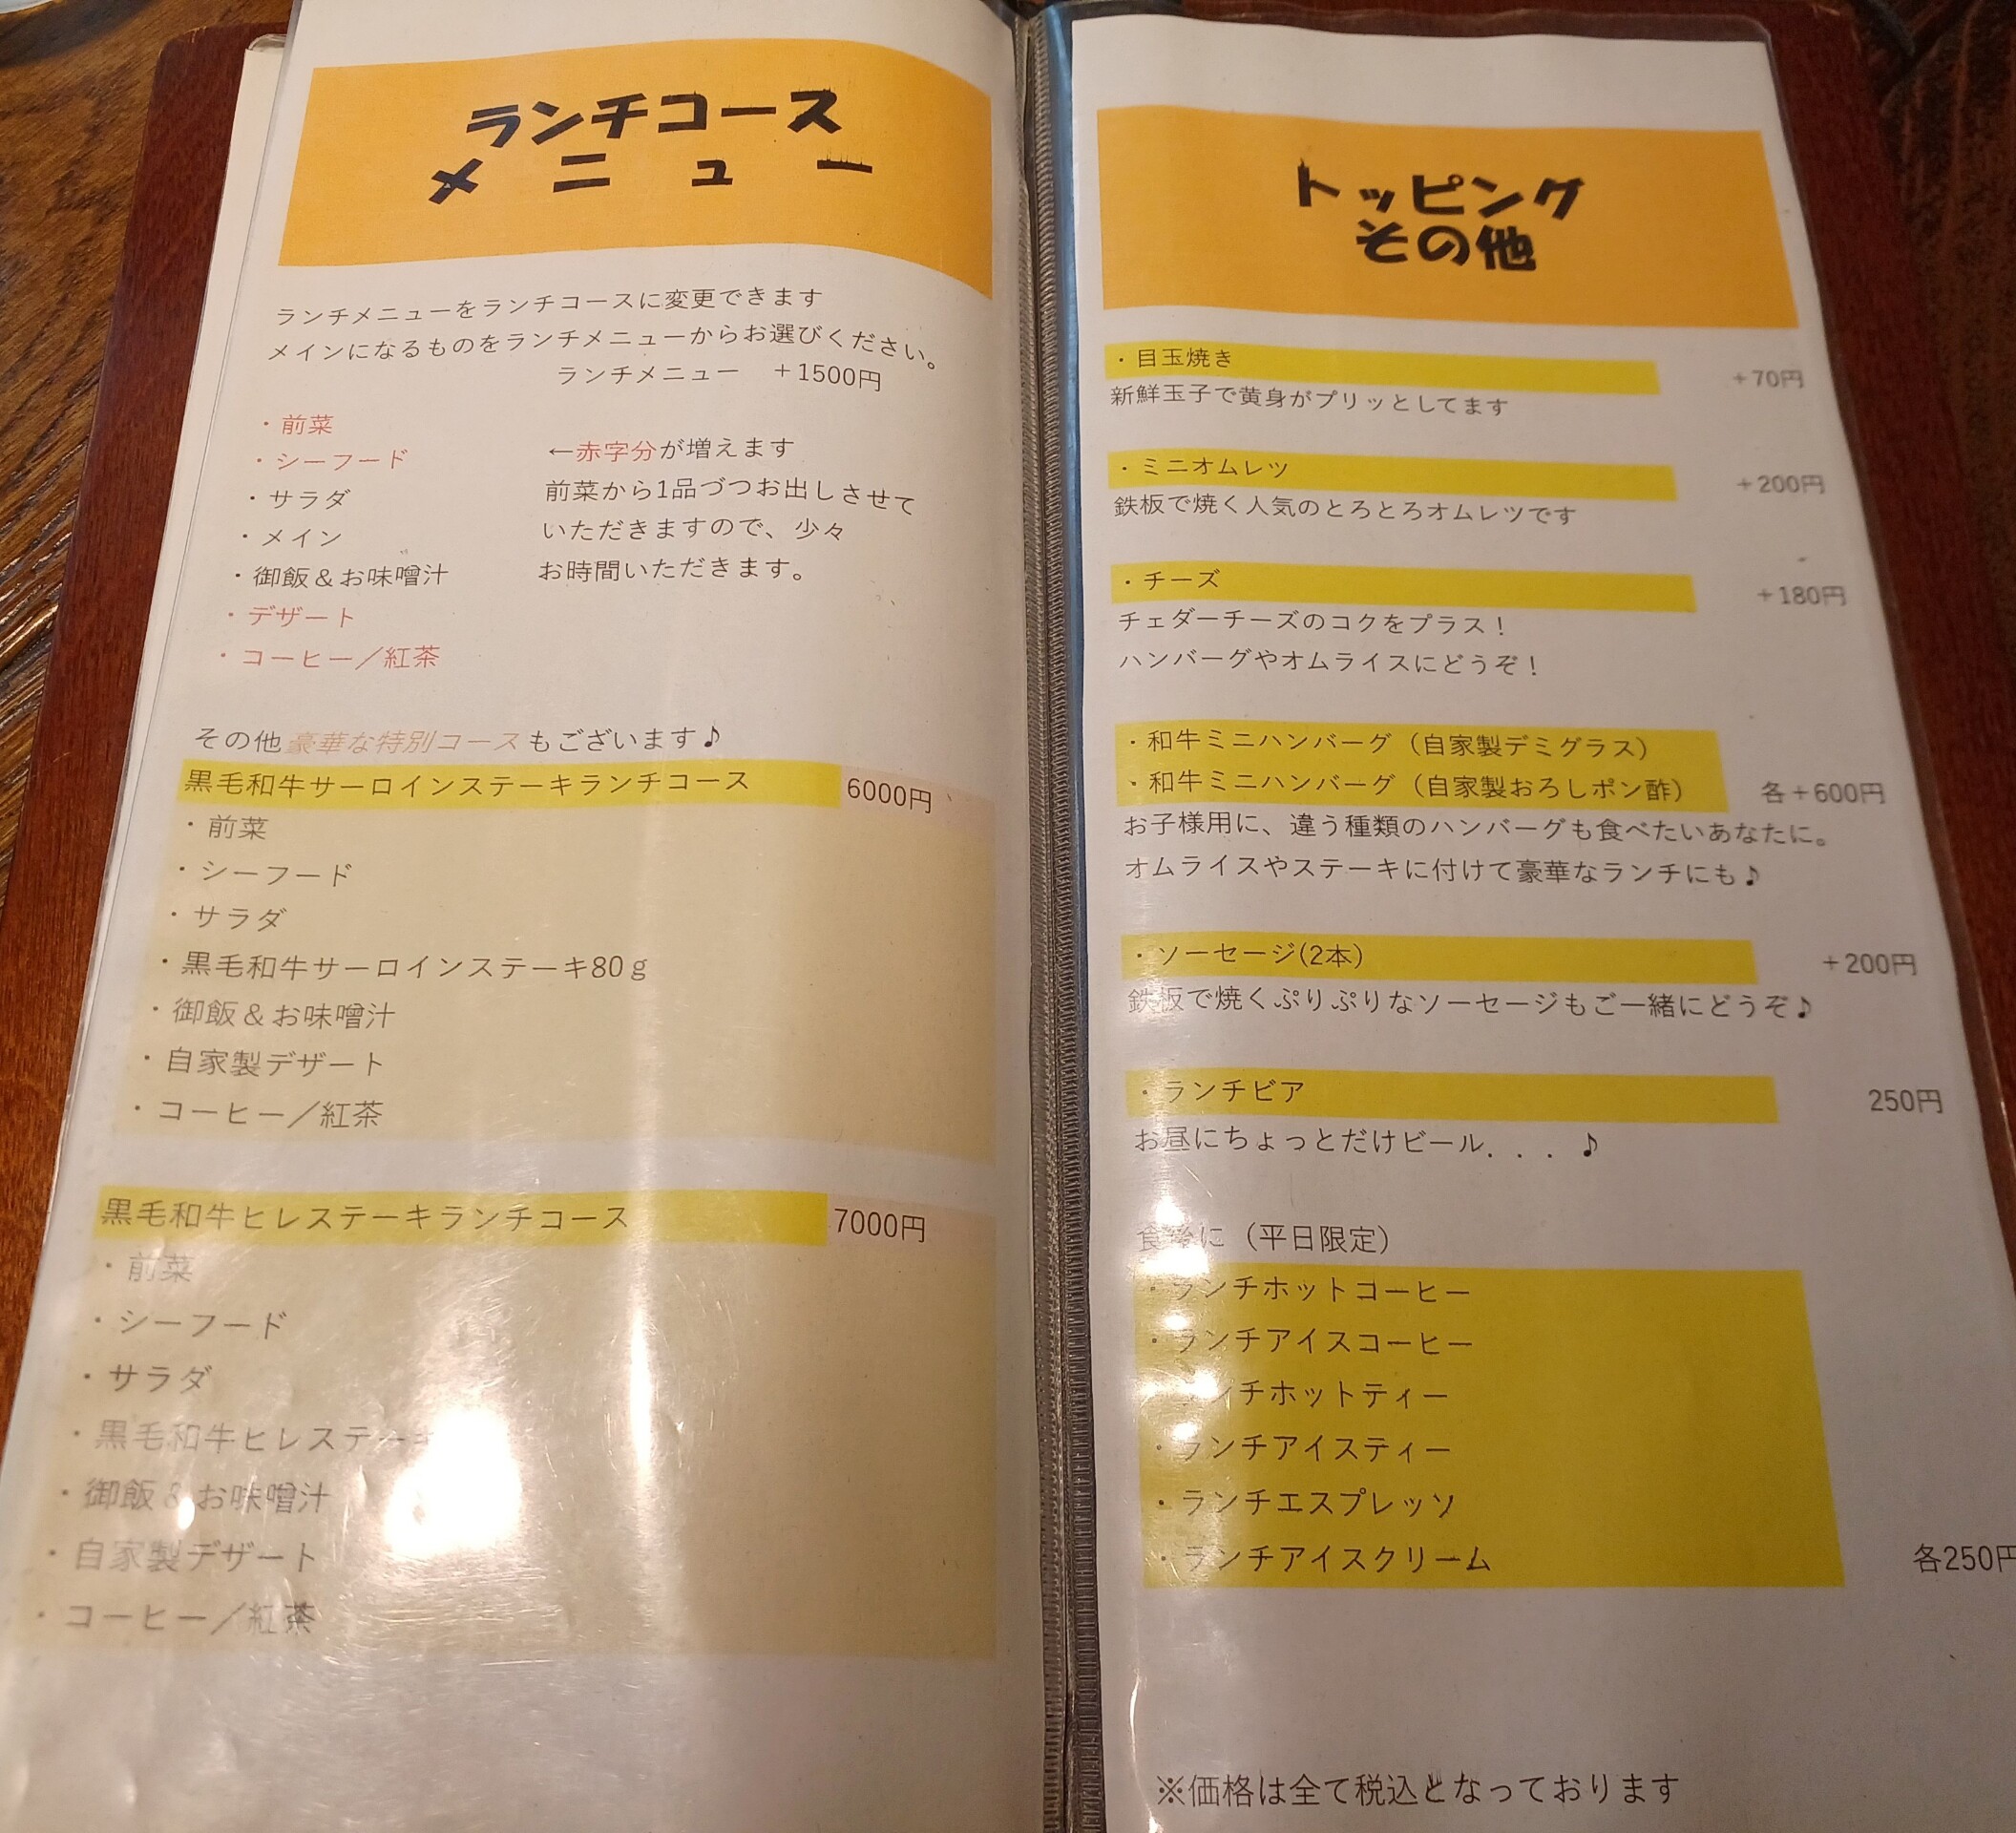 ランチコース
メニュー
ランチメニューをランチコースに変更できます
メインになるものをランチメニューからお選びください。
ランチメニュー　+1500円
・前菜
・シーフード
・サラダ
・メイン
・御飯＆お味噌汁
・デザート
・コーヒー／紅茶
←赤字分が増えます
前菜から1品づつお出しさせて
いただきますので、少々
お時間いただきます。
その他豪華な特別コースもございます♪
黒毛和牛サーロインステーキランチコース 6000円
・前菜
・シーフード
・サラダ
・黒毛和牛サーロインステーキ80g
・御飯＆お味噌汁
・自家製デザート
・コーヒー／紅茶
黒毛和牛ヒレステーキランチコース 7000円
・前菜
・シーフード
・サラダ
・黒毛和牛ヒレステーキ
・御飯＆お味噌汁
・自家製デザート
・コーヒー／紅茶
トッピング
その他
・目玉焼き +70円
新鮮玉子で黄身がプリッとしてます
・ミニオムレツ +200円
鉄板で焼く人気のとろとろオムレツです
・チーズ +180円
チェダーチーズのコクをプラス！
ハンバーグやオムライスにどうぞ！
・和牛ミニハンバーグ（自家製デミグラス）
・和牛ミニハンバーグ（自家製おろしポン酢） 各+600円
お子様用に、違う種類のハンバーグも食べたいあなたに。
オムライスやステーキに付けて豪華なランチにも♪
・ソーセージ(2本) +200円
鉄板で焼くぷりぷりなソーセージもご一緒にどうぞ♪
・ランチビア 250円
お昼にちょっとだけビール．．．♪
食後に（平日限定）
・ランチホットコーヒー
・ランチアイスコーヒー
・ランチホットティー
・ランチアイスティー
・ランチエスプレッソ
・ランチアイスクリーム 各250円
※価格は全て税込となっております